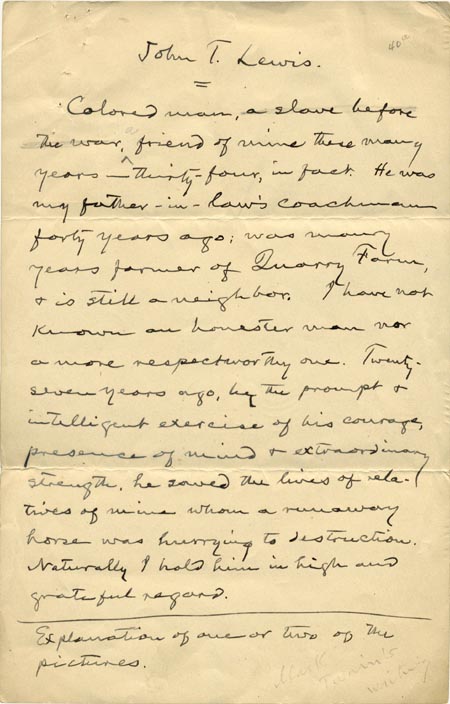 40a
John T. Lewis.
=
Colored man, a slave before
the war, a friend of mine these many
years — thirty-four, in fact. He was
my father-in-law's coachman
forty years ago; was many
years farmer of Quarry Farm,
& is still a neighbor. I have not
known an honester man nor
a more respectworthy one. Twenty-
seven years ago, by the prompt &
intelligent exercise of his courage,
presence of mind & extraordinary
strength, he saved the lives of rela-
tives of mine whom a runaway
horse was hurrying to destruction.
Naturally I hold him in high and
grateful regard.
Explanation of one or two of the
pictures.
Mark
Twain's
writing